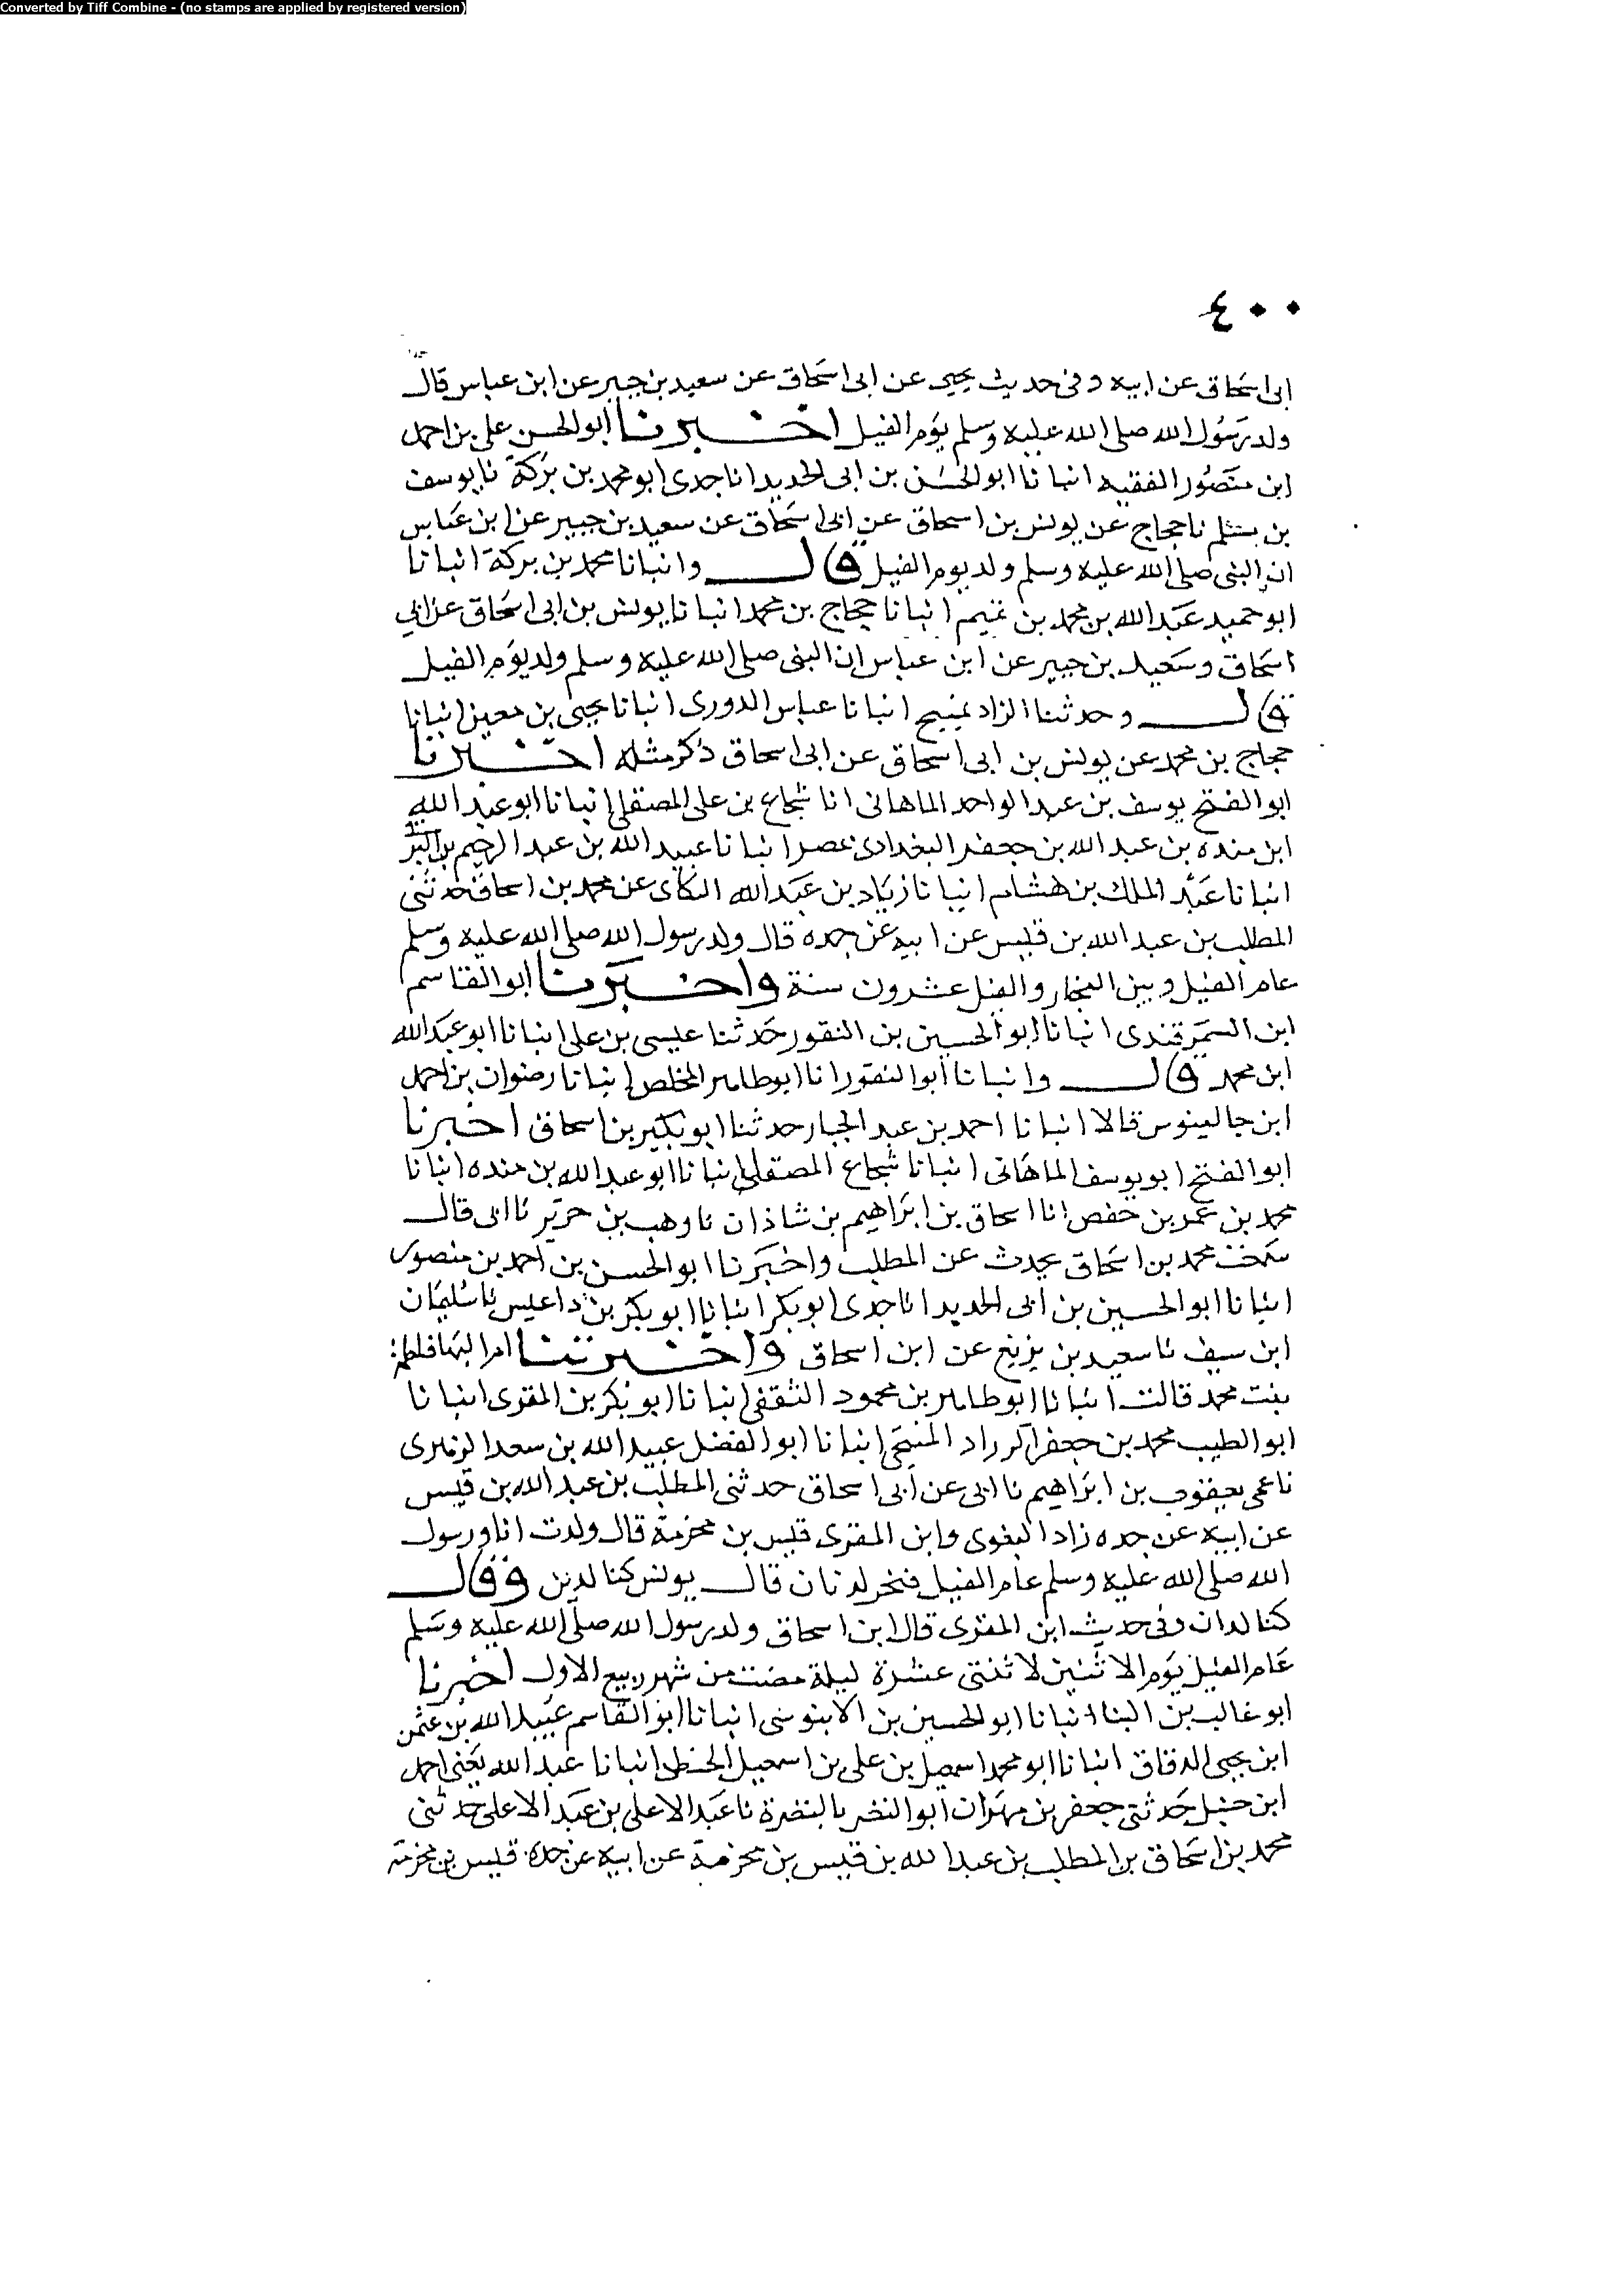 Converted by Tiff Combine - (no stamps are applied by registered version)
٤٠٠
ابى اسحاق عن ابيه وفى حديث يحيى عن ابى اسحاق عن سعيد بن جبير عن ابن عباس قال
ولد رسول الله صلى الله عليه وسلم يوم الفيل اخبرنا ابو الحسن على بن احمد
ابن منصور الفقيه انبانا ابو الحسن بن ابى الحديد انا جدى ابو محمد بن بركة نا يوسف
بن مسلم نا حجاج عن يونس بن اسحاق عن ابى اسحاق عن سعيد بن جبير عن ابن عباس
ان النبى صلى الله عليه وسلم ولد يوم الفيل قال وانبانا محمد بن بركة انبانا
ابو حميد عبد الله بن محمد بن تميم انبانا حجاج بن محمد انبانا يونس بن ابى اسحاق عن ابي
اسحاق وسعيد بن جبير عن ابن عباس ان النبى صلى الله عليه وسلم ولد يوم الفيل
قال وحدثنا الزاد بمنبج انبانا عباس الدورى انبانا يحيى بن معين انبانا
حجاج بن محمد عن يونس بن ابى اسحاق عن ابى اسحاق ذكر مثله اخبرنا
ابو الفتح يوسف بن عبد الواحد الماهانى انا شجاع بن على المصقلى انبانا ابو عبد الله
ابن منده بن عبد الله بن جعفر البغدادى بمصر انبانا عبيد الله بن عبد الرحيم بن البر
انبانا عبد الملك بن هشام انبانا زياد بن عبد الله البكاى عن محمد بن اسحاق حدثنى
المطلب بن عبد الله بن قيس عن ابيه عن جده قال ولد رسول الله صلى الله عليه وسلم
عام الفيل وبين الفجار والفيل عشرون سنة واخبرنا ابو القاسم
ابن السمرقندى انبانا ابو الحسين بن النقور حدثنا عيسى بن على انبانا ابو عبد الله
ابن محمد قال وانبانا ابو النقور انا ابو طاهر المخلص انبانا رضوان بن احمد
ابن جالينوس قالا انبانا احمد بن عبد الجبار حدثنا ابو بكير بن اسحاق اخبرنا
ابو الفتح ابو يوسف الماهانى انبانا شجاع المصقلى انبانا ابو عبد الله بن منده انبانا
محمد بن عمر بن حفص انا اسحاق بن ابراهيم بن شاذان نا وهب بن حرير نا ابى قال
سمعت محمد بن اسحاق يحدث عن المطلب واخبرنا ابو الحسن بن احمد بن منصور
انبانا ابو الحسين بن ابى الحديد انا جدى ابو بكر انبانا ابو بكر بن داعيس نا سليمان
ابن سيف نا سعيد بن بزيغ عن ابن اسحاق واخبرتنا ام البها فاطمة
بنت محمد قالت انبانا ابو طاهر بن محمود الثقفى انبانا ابو بكر بن المقرى انبانا
ابو الطيب محمد بن جعفر الزراد المنبجى انبانا ابو الفضل عبيد الله بن سعد الزهرى
نا عمى يعقوب بن ابراهيم نا ابى عن ابى اسحاق حدثنى المطلب بن عبد الله بن قيس
عن ابيه عن جده زاد البغوى وابن المقرى قيس بن مخرمة قال ولدت انا ورسول
الله صلى الله عليه وسلم عام الفيل فنحن لدتان قال يونس كنا لدين وقال
كنا لدان وفى حديث ابن المقرى قال ابن اسحاق ولد رسول الله صلى الله عليه وسلم
عام الفيل يوم الاثنين لاثنتى عشرة ليلة مضت من شهر ربيع الاول اخبرنا
ابو غالب بن البنا انبانا ابو الحسين بن الابنوسى انبانا ابو القاسم عبيد الله بن عثمن
ابن يحيى الدقاق انبانا ابو محمد اسمعيل بن على بن اسمعيل الخطى انبانا عبد الله يعنى احمد
ابن حنبل حدثنى جعفر بن مهران ابو النضر بالبصرة نا عبد الاعلى بن عبد الاعلى حدثنى
محمد بن اسحاق بن المطلب بن عبد الله بن قيس بن مخرمة عن ابيه عن جده قيس بن مخرمة